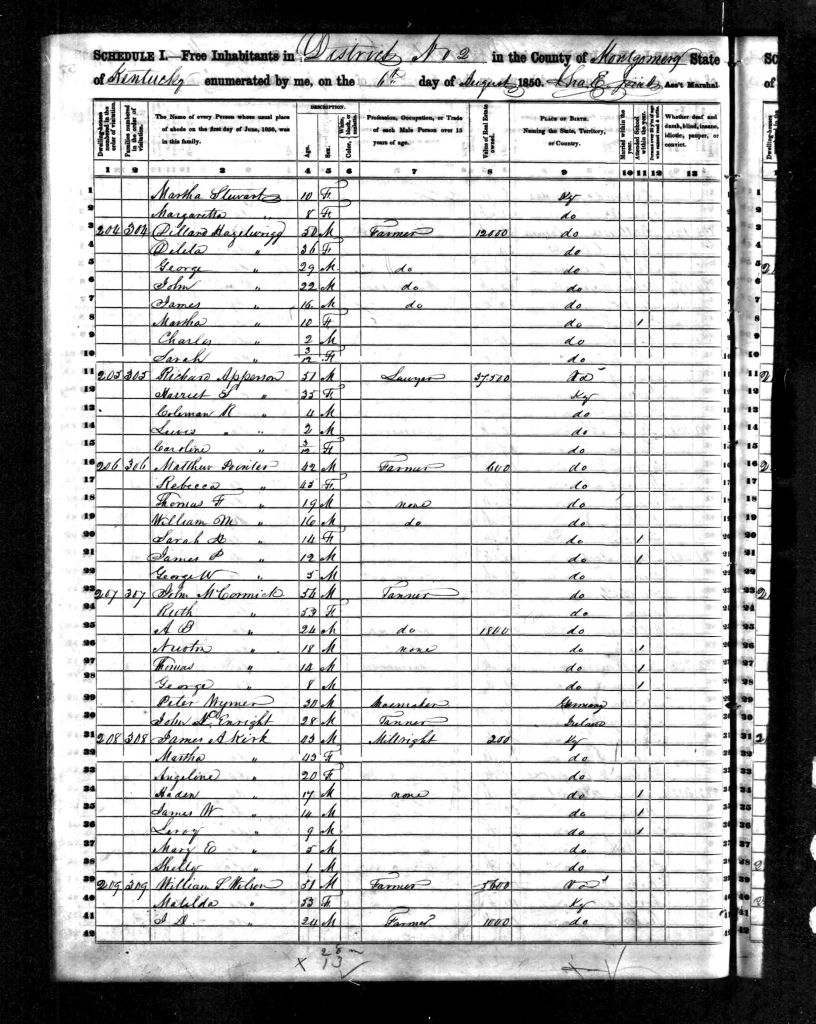 SCHEDULE I.—Free Inhabitants in District No 2 in the County of Montgomery State
of Kentucky enumerated by me, on the 6th day of August 1850. Chas E Ass't Marshal.
Dwelling-houses numbered in the order of visitation.
Families numbered in the order of visitation.
The Name of every Person whose usual place of abode on the first day of June, 1850, was in this family.
DESCRIPTION.
Age.
Sex.
Color, White, black, or mulatto.
Profession, Occupation, or Trade of each Male Person over 15 years of age.
Value of Real Estate owned.
PLACE OF BIRTH. Naming the State, Territory, or Country.
Married within the year.
Attended School within the year.
Whether deaf and dumb, blind, insane, idiotic, pauper, or convict.
1 2 3 4 5 6 7 8 9 10 11 12 13
1 Martha Stewart 10 F Ky 1
2 Margaretta " 8 F do 2
3 204 304 Dillard Hazelwrigg 50 M Farmer 12000 do 3
4 " 36 F do 4
5 George " 29 M do do 5
6 John " 22 M do do 6
7 James " 16 M do do 7
8 Martha " 10 F do 1 8
9 Charles " 2 M do 9
10 Sarah " 3/12 F do 10
11 205 305 Richard Apperson 51 M Lawyer 37500 Va 11
12 Harriet " 35 F Ky 12
13 Coleman R " 4 M do 13
14 Lewis " " 2 M do 14
15 Caroline " 3/12 F do 15
16 206 306 Matthew 42 M Farmer 600 do 16
17 Rebecca " 43 F do 17
18 Thomas F " 19 M none do 18
19 William M " 16 M do do 19
20 Sarah " 14 F do 1 20
21 James P " 12 M do 1 21
22 George W " 5 M do 22
23 207 307 John McCormick 54 M Tanner do 23
24 Ruth " 53 F do 24
25 A B " 24 M do 1800 do 25
26 Newton " 18 M none do 1 26
27 Thomas " 14 M do 1 27
28 George " 8 M do 1 28
29 Peter Wymer 30 M Shoemaker Germany 29
30 John Enright 28 M Tanner Ireland 30
31 208 308 James A Kirk 43 M Millright 200 Ky 31
32 Martha " 43 F do 32
33 Angeline " 20 F do 33
34 Haden " 17 M none do 1 34
35 James W " 14 M do 1 35
36 Leroy " 9 M do 1 36
37 Mary E " 5 M do 37
38 Shelly " 1 M do 38
39 209 309 William S Wilson 51 M Farmer 5600 Va 39
40 Matilda " 53 F Ky 40
41 " 24 M Farmer 1000 do 41
42 42
28 m
13